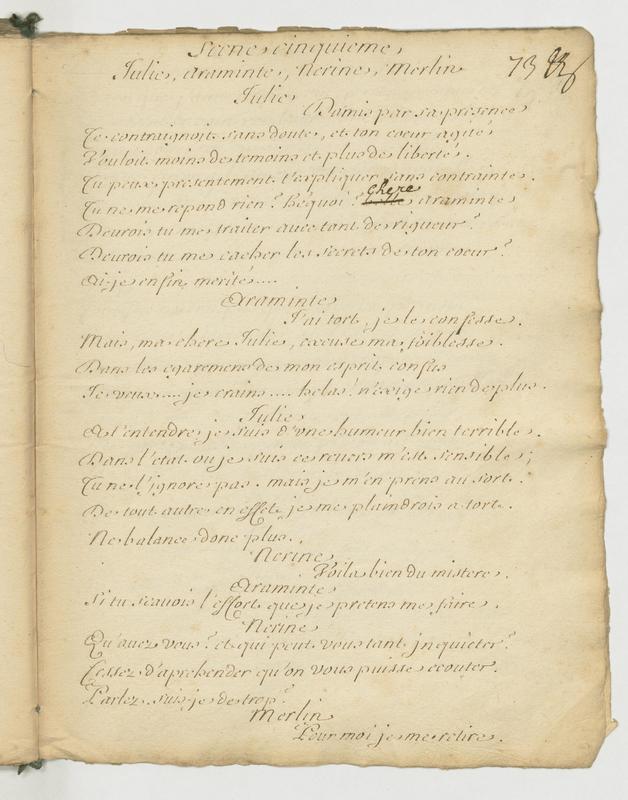 Scene cinquieme
Julie, araminte, Nerine, Merlin 73
Julie
Damis par sa presence
Te contraignoit sans doute, et ton coeur agité
Vouloit moins de temoins et plus de liberté.
Tu peux presentement t'expliquer sans contrainte.
Tu ne me repond rien? hé quoi? chere araminte
Devrois tu me traiter avec tant de rigueur?
Devrois tu me cacher les secrets de ton coeur?
Ai-je enfin merité....
Araminte
J'ai tort, je le confesse.
Mais, ma chere Julie, excuse ma foiblesse.
Dans les egaremens de mon esprit confus
Je veux.... je crains.... helas! n'exige rien de plus.
Julie
A t'entendre, je suis d'vne humeur bien terrible.
Dans l'etat ou je suis ce revers m'est sensible;
Tu ne l'ignore pas. mais je m'en prens au sort.
De tout autre en effet je me plaindrois a tort.
Ne balance donc plus.
Nerine
Voila bien du mistere.
Araminte
Si tu scavois l'effort que je pretens me faire.
Nerine
Qu'avez vous? et qui peut vous tant jnquieter?
Cessez d'aprehender qu'on vous puisse ecouter.
Parlez. suis-je de trop?
Merlin
Pour moi je me retire.